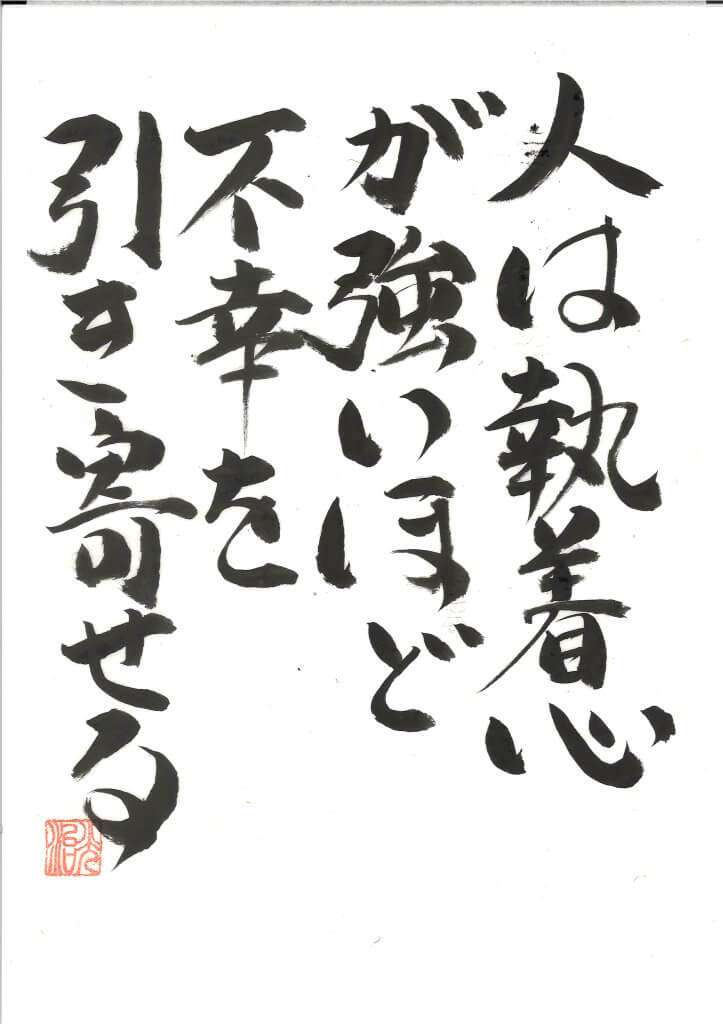 人は執着心
が強いほど
不幸を
引き寄せる